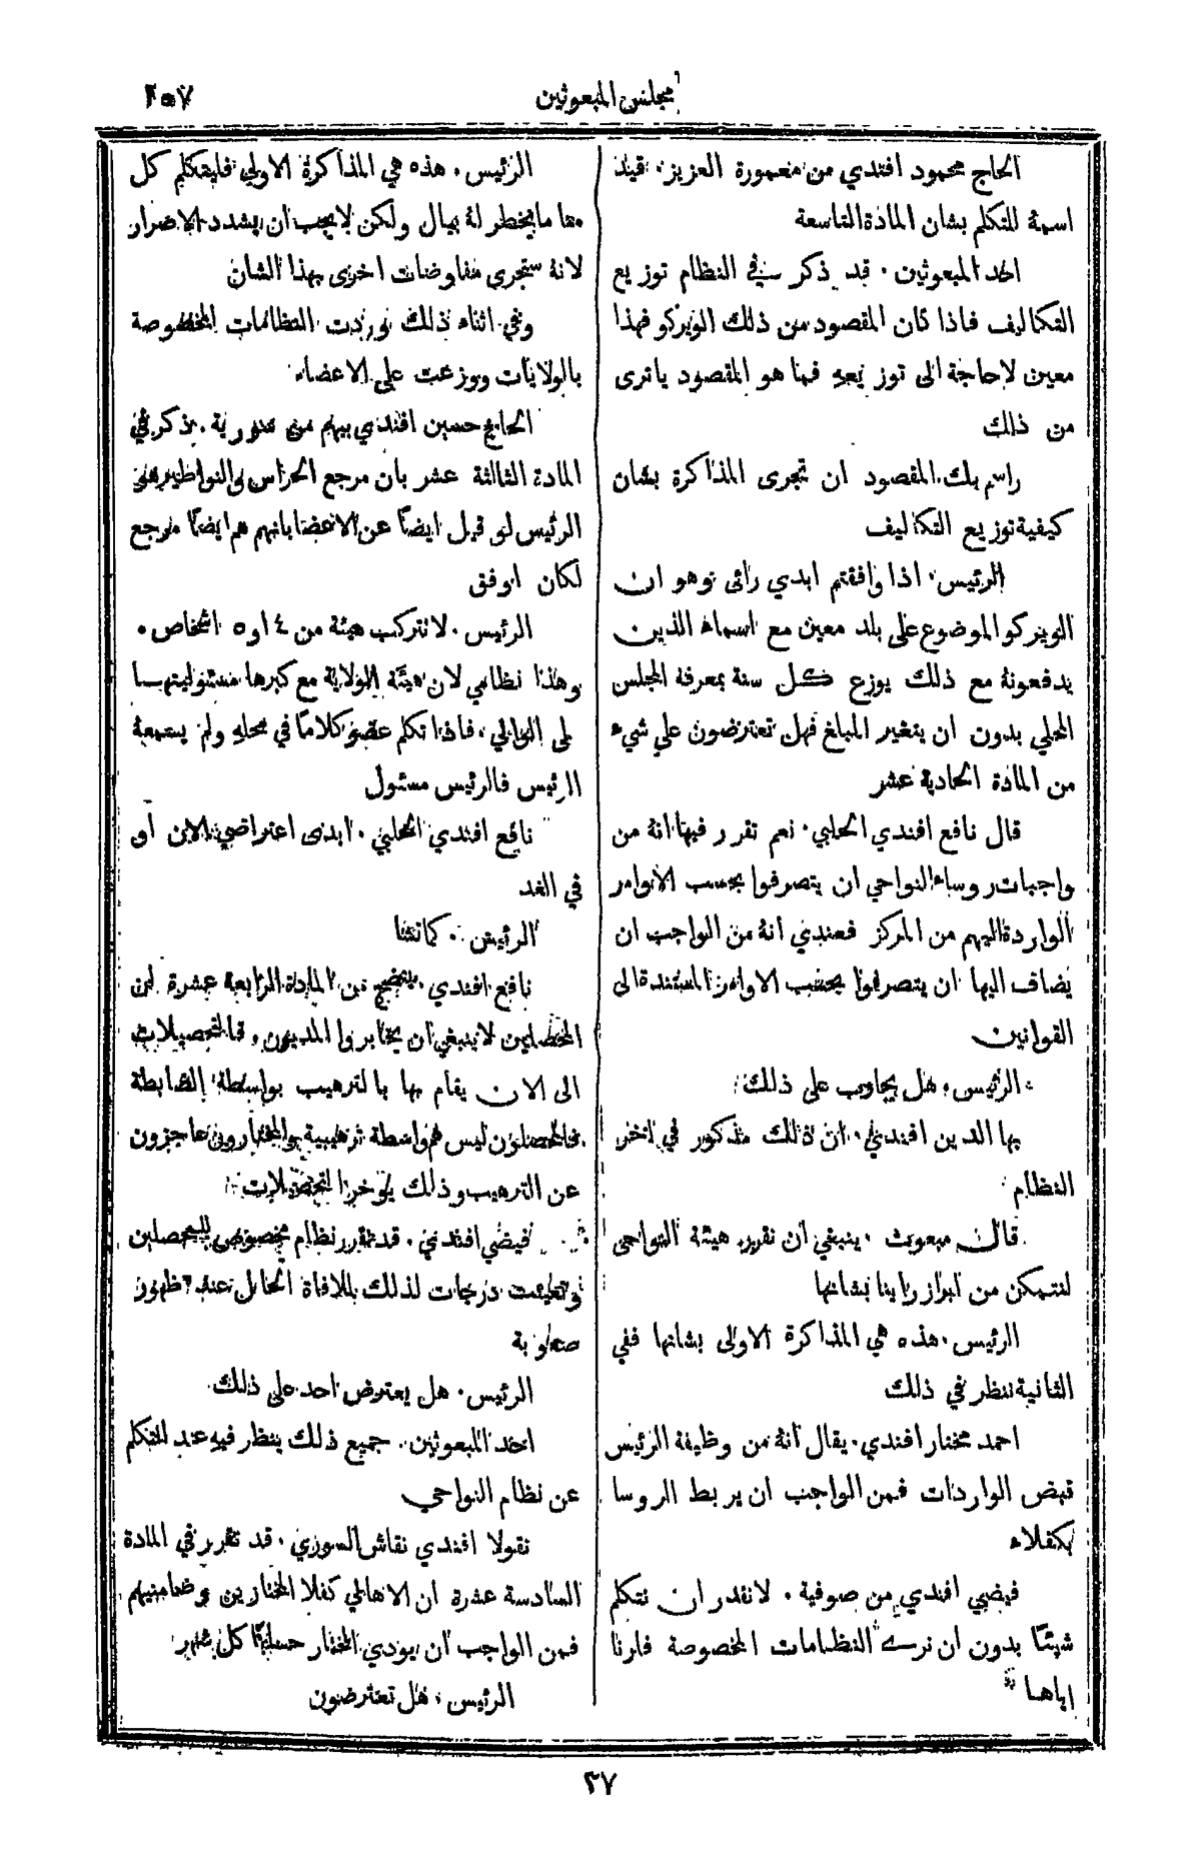 مجلس المبعوثين
٢٥٧
الحاج محمود افندي من معمورة العزيز٠ قيد
اسمهُ للتكلم بشان المادة التاسعة
احد المبعوثين٠ قد ذكر في النظام توزيع
التكاليف فاذا كان المقصود من ذلك الويركو فهذا
معين لاحاجة الى توزيعه فما هو المقصود ياترى
من ذلك
راسم بك٠ المقصود ان تجرى المذاكرة بشان
كيفية توزيع التكاليف
الرئيس٠ اذا وافقتم ابدي رائى وهو ان
الويركو الموضوع على بلد معين مع اسماء الذين
يدفعونهُ مع ذلك يوزع كل سنة بمعرفة المجلس
المحلي بدون ان يتغير المبلغ فهل تعترضون علي شيء
من المادة الحادية عشر
قال نافع افندي الحلبي٠ نعم تقرر فيها انهُ من
واجبات روساء النواحي ان يتصرفوا بحسب الاوامر
الواردة اليهم من المركز فعندي انهُ من الواجب ان
يضاف اليها ان يتصرفوا بحسب الاوامر المستندة الى
القوانين
الرئيس٠ هل يجاوب على ذلك
بها الدين افندي٠ ان ذلك مذكور في اخر
النظام
قال مبعوث ٠ ينبغي ان نقرر هيئة النواحى
لنتمكن من ابراز راينا بشانها
الرئيس٠ هذه هي المذاكرة الاولى بشانها ففي
الثانية ننظر في ذلك
احمد مختار افندي٠ يقال انهُ من وظيفة الرئيس
قبض الواردات فمن الواجب ان يربط الروسا
بكفلاء
فيضي افندي من صوفية ٠ لانقدر ان نتكلم
شيئًا بدون ان نرى النظامات المخصوصة فارنا
اياها
الرئيس٠ هذه هي المذاكرة الاولي فليتكلم كل
منا ما يخطر لهُ ببال ولكن لا يجب ان يشدد الاصرار
لانهُ ستجري مفاوضات اخرى بهذا الشان
وفي اثناء ذلك وردت النظامات المخصوصة
بالولايات ووزعت على الاعضاء
الحاج حسين افندي بيهم من سورية٠ يذكر في
المادة الثالثة عشر بان مرجع الحراس والنواطير هو
الرئيس لو قيل ايضًا عن الاعضا بانهم هم ايضًا مرجع
لكان اوفق
الرئيس ٠ لا تتركب هيئة من ٤ او ٥ اشخاص ٠
وهذا نظامي لان هيئة الولاية مع كبرها مسئوليتها
على الوالي ٠ فاذا تكلم عضو كلامًا في محله ولم يسمعهُ
الرئيس فالرئيس مسئول
نافع افندي الحلبي ٠ ابدى اعتراضي الان أو
في الغد
الرئيس ٠ كما تشا
نافع افندي يتضح من المادة الرابعة عشرة ان
المحصلين لا ينبغي ان يخابروا المديون وفالتحصيلات
الى الان يقام بها بالترهيب بواسطة الضابطة
فالمحصلون ليس لهم واسطة ترهيبية والمختارون عاجزون
عن الترهيب وذلك يوخر التحصيلات
فيضي افندي ٠ قد تقرر نظام مخصوص للمحصلين
وتعينت درجات لذلك بملافاة الحال عند ظهور
صعوبة
الرئيس٠ هل يعترض احد على ذلك
احد المبعوثين٠ جميع ذلك ينظر فيه عند التكلم
عن نظام النواحي
نقولا افندي نقاش السوري ٠ قد تقرر في المادة
السادسة عشرة ان الاهالي كفلا المختارين وضامنيهم
فمن الواجب ان يودي المختار حسابًا كل شهر
الرئيس ٠ هل تعترضون
٣٧